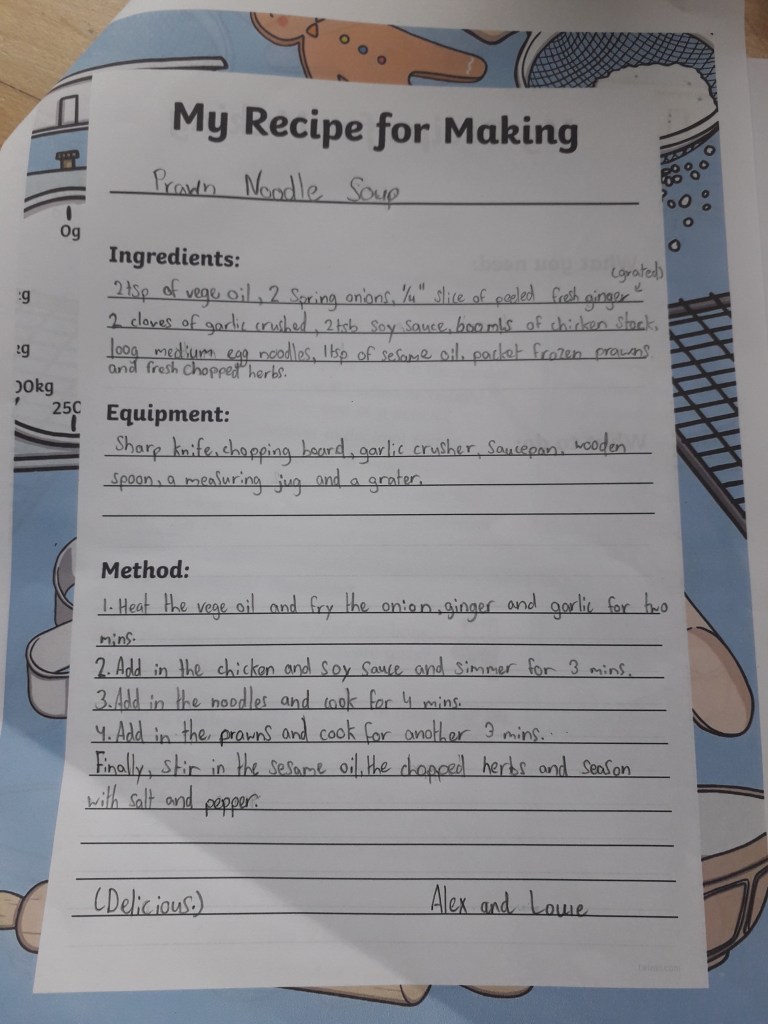 My Recipe for Making
Prawn Noodle Soup
Ingredients:
(grated)
2tsp of vege oil, 2 Spring onions, 1/4" slice of peeled fresh ginger
2 cloves of garlic crushed, 2tsb soy sauce, 600mls of chicken stock,
100g medium egg noodles, 1tsp of sesame oil, packet frozen prawns
and fresh chopped herbs.
Equipment:
Sharp knife, chopping board, garlic crusher, Saucepan, wooden
spoon, a measuring jug and a grater.
Method:
1. Heat the vege oil and fry the onion, ginger and garlic for two
mins.
2. Add in the chicken and soy sauce and simmer for 3 mins.
3. Add in the noodles and cook for 4 mins.
4. Add in the prawns and cook for another 3 mins...
Finally, stir in the sesame oil, the chopped herbs and season
with salt and pepper.
(Delicious.) Alex and Louie
0g
:g
:g
00kg
250